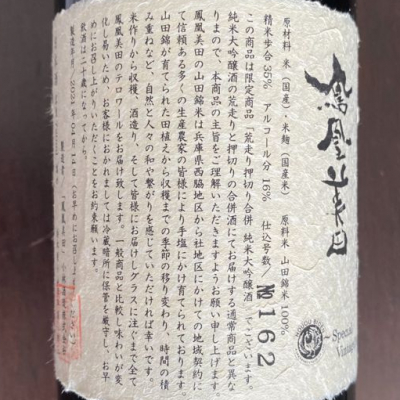 鳳凰美田
Special
Vintage
原材料 米(国産)・米麹(国産米) 原料米 山田錦米100%
精米歩合35% アルコール分 16% 仕込号数/№162
この商品は限定商品「荒走り押切り合併 純米大吟醸酒」でございます。
純米大吟醸酒の荒走りと押切りの合併酒にてお届けする通常商品と異な
りますので、本商品の主旨をご理解いただきますようお願い申し上げます。
鳳凰美田の山田錦米は兵庫県西脇地区から社地区にかけての地域契約に
て信頼ある多くの生産農家の皆様により手塩にかけ育てられております。
山田錦が育てられた田植えから収穫までの季節の移り変わり、時間の積
み重ねなど、自然と人々の和や繋がりを感じていただければ幸いです。
米作りから収穫、酒造り、そして皆様にお届けしグラスに注ぐまで全て
鳳凰美田のテロワールをお届け致します。一般商品と比較し味わいが変
化し易いため、お客様におかれましては冷蔵暗所に保管を厳守し、お早
めにお召し上がりいただくことをお約束願います。
飲酒は二十歳になってから。
製造年月 2021年04月14日(お早めにお召し上がりください)
製造者 鳳凰美田 小林酒造株式会社